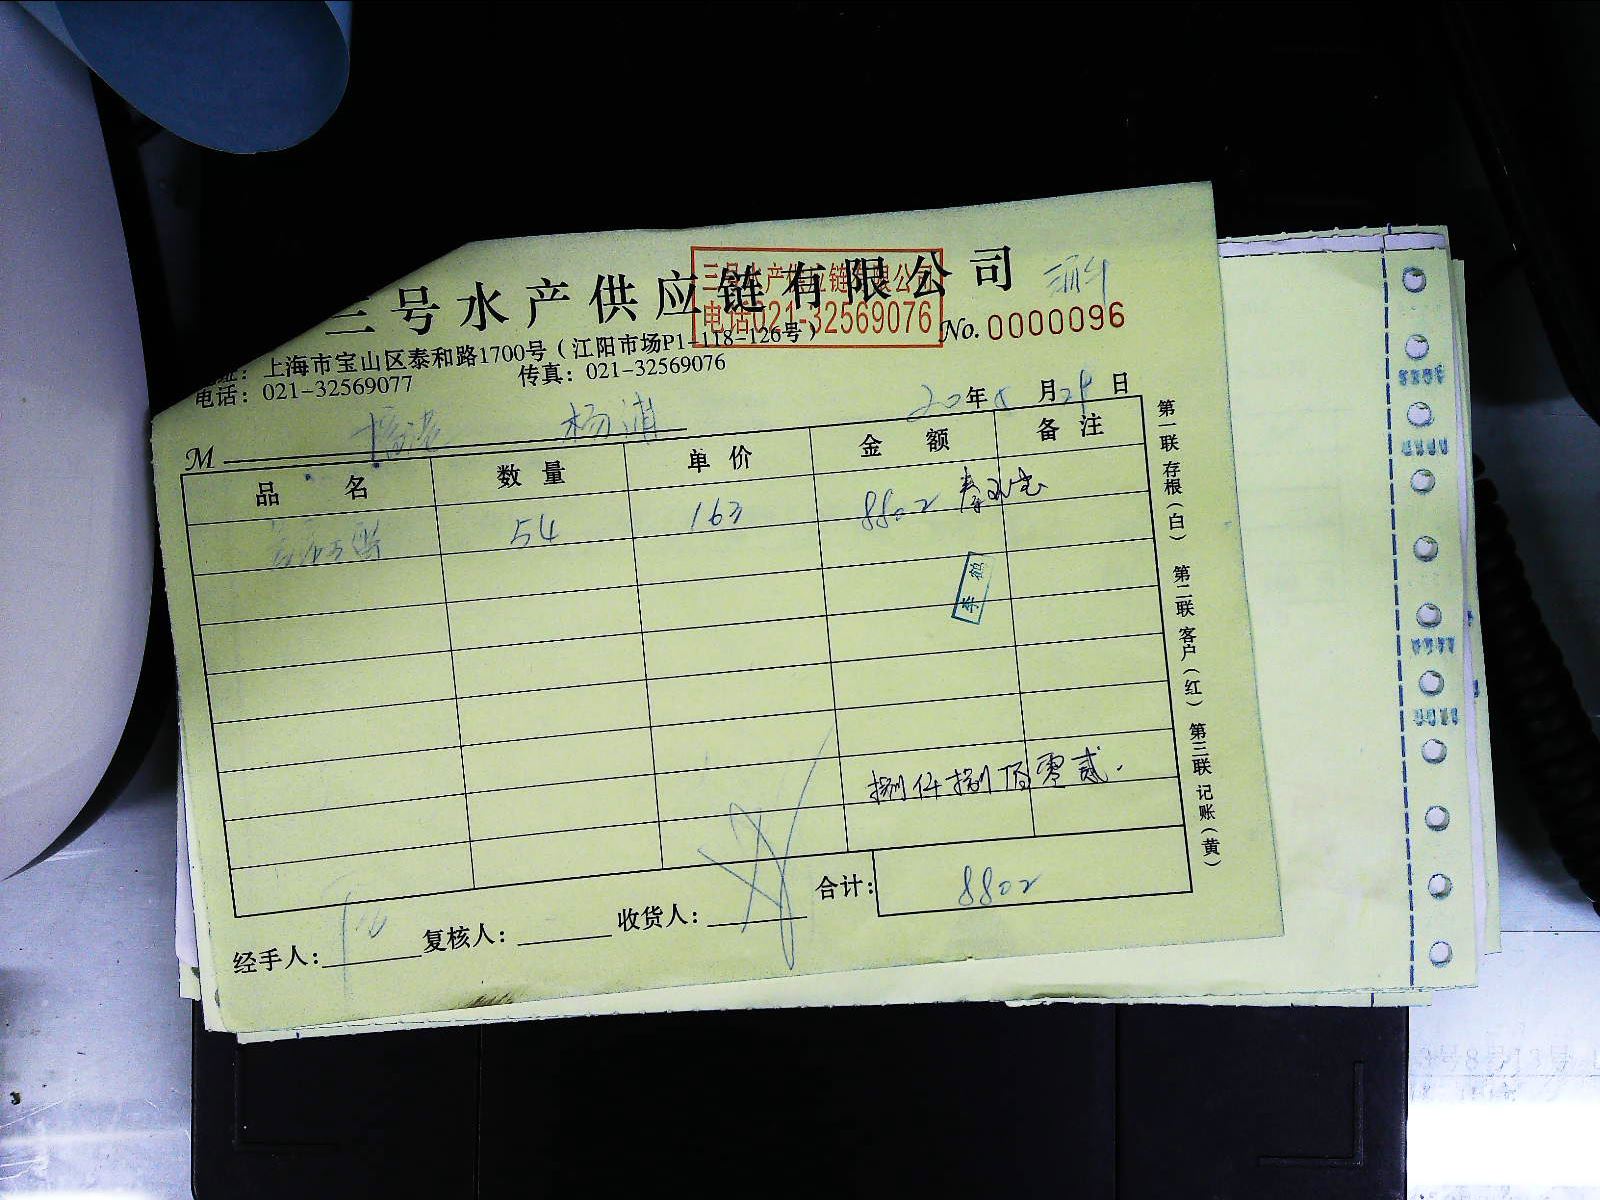 三号水产供应链有限公司
三号水产供应链有限公司
电话021-32569076
No. 0000096
址：上海市宝山区泰和路1700号（江阳市场P1-118-126号）
电话：021-32569077 传真：021-32569076
20年5月29日
M 杨浦
品名 数量 单价 金额 备注
54 163 8802
李鹤
捌仟捌佰零贰.
合计：8802
经手人： 复核人： 收货人：
第一联 存根（白） 第二联 客户（红） 第三联 记账（黄）